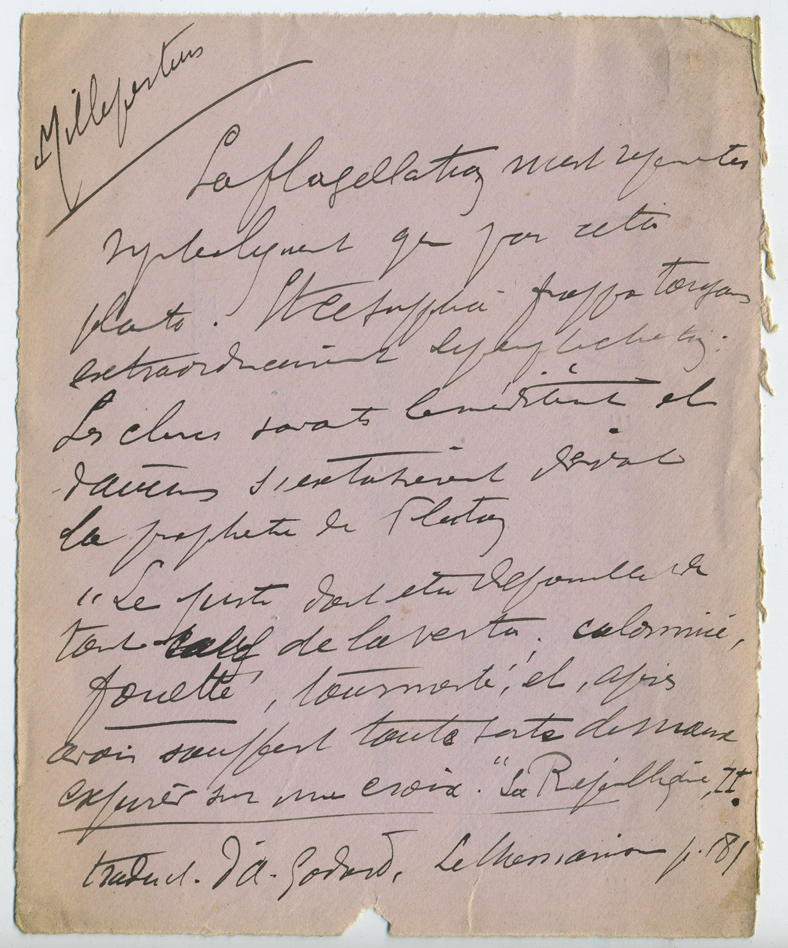 Millepertuis
La flagellation n'est représentée
symboliquement que par cette
plante. Et ce supplice frappa toujours
extraordinairement
Les clercs savants le méditèrent et
d'aucuns s'extasièrent devant
la prophétie de Platon
"Le juste doit être dépouillé de
tout sauf de la vertu, calomnié,
fouetté, tourmenté, et, après
avoir souffert toute sorte de maux
expirer sur une croix." La République, II.
traduct. d'A. Godard, Le Messianisme p. 181